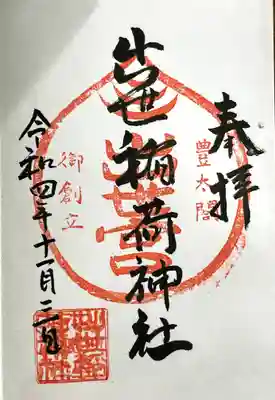 奉拝
豊太閤
出世稲荷神社
御創立
令和四年十一月二日